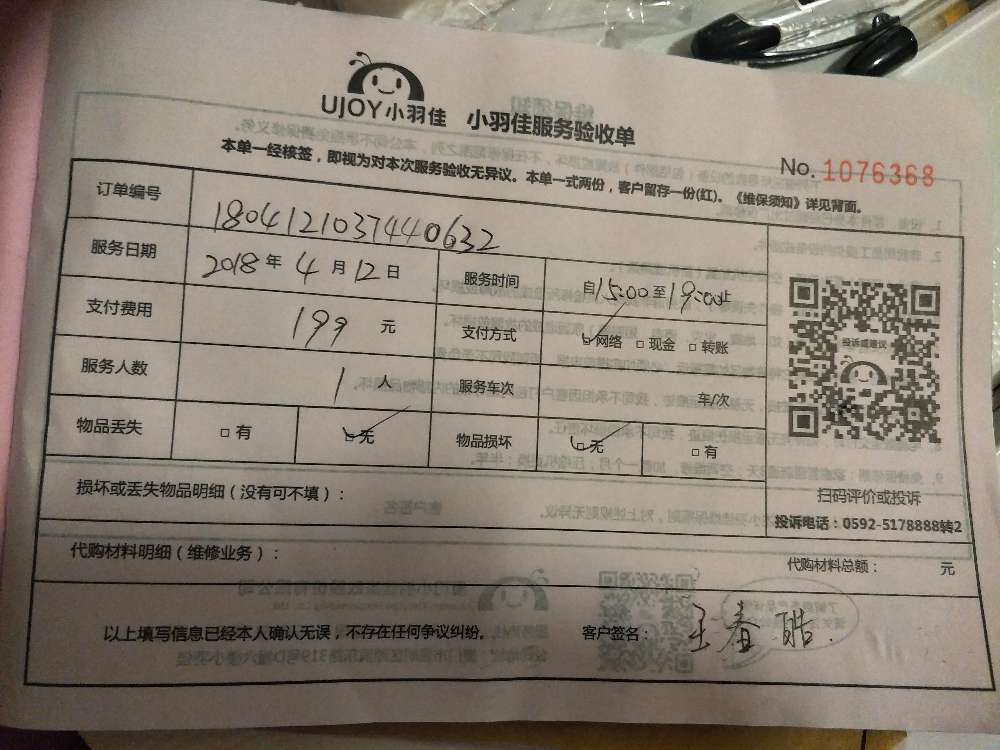 UJOY小羽佳 小羽佳服务验收单
本单一经核签，即视为对本次服务验收无异议。本单一式两份，客户留存一份(红)。《维保须知》详见背面。
No. 1076368
订单编号 1804121037440632
服务日期 2018 年 4 月 12 日 服务时间 自15:00至19:00止
支付费用 199 元 支付方式 网络 □ 现金 □ 转账
服务人数 1 人 服务车次 车/次
物品丢失 □ 有 无 物品损坏 无 □ 有
投诉或建议
扫码评价或投诉
投诉电话：0592-5178888转2
损坏或丢失物品明细（没有可不填）：
代购材料明细（维修业务）： 代购材料总额： 元
以上填写信息已经本人确认无误，不存在任何争议纠纷。 客户签名： 王春皓